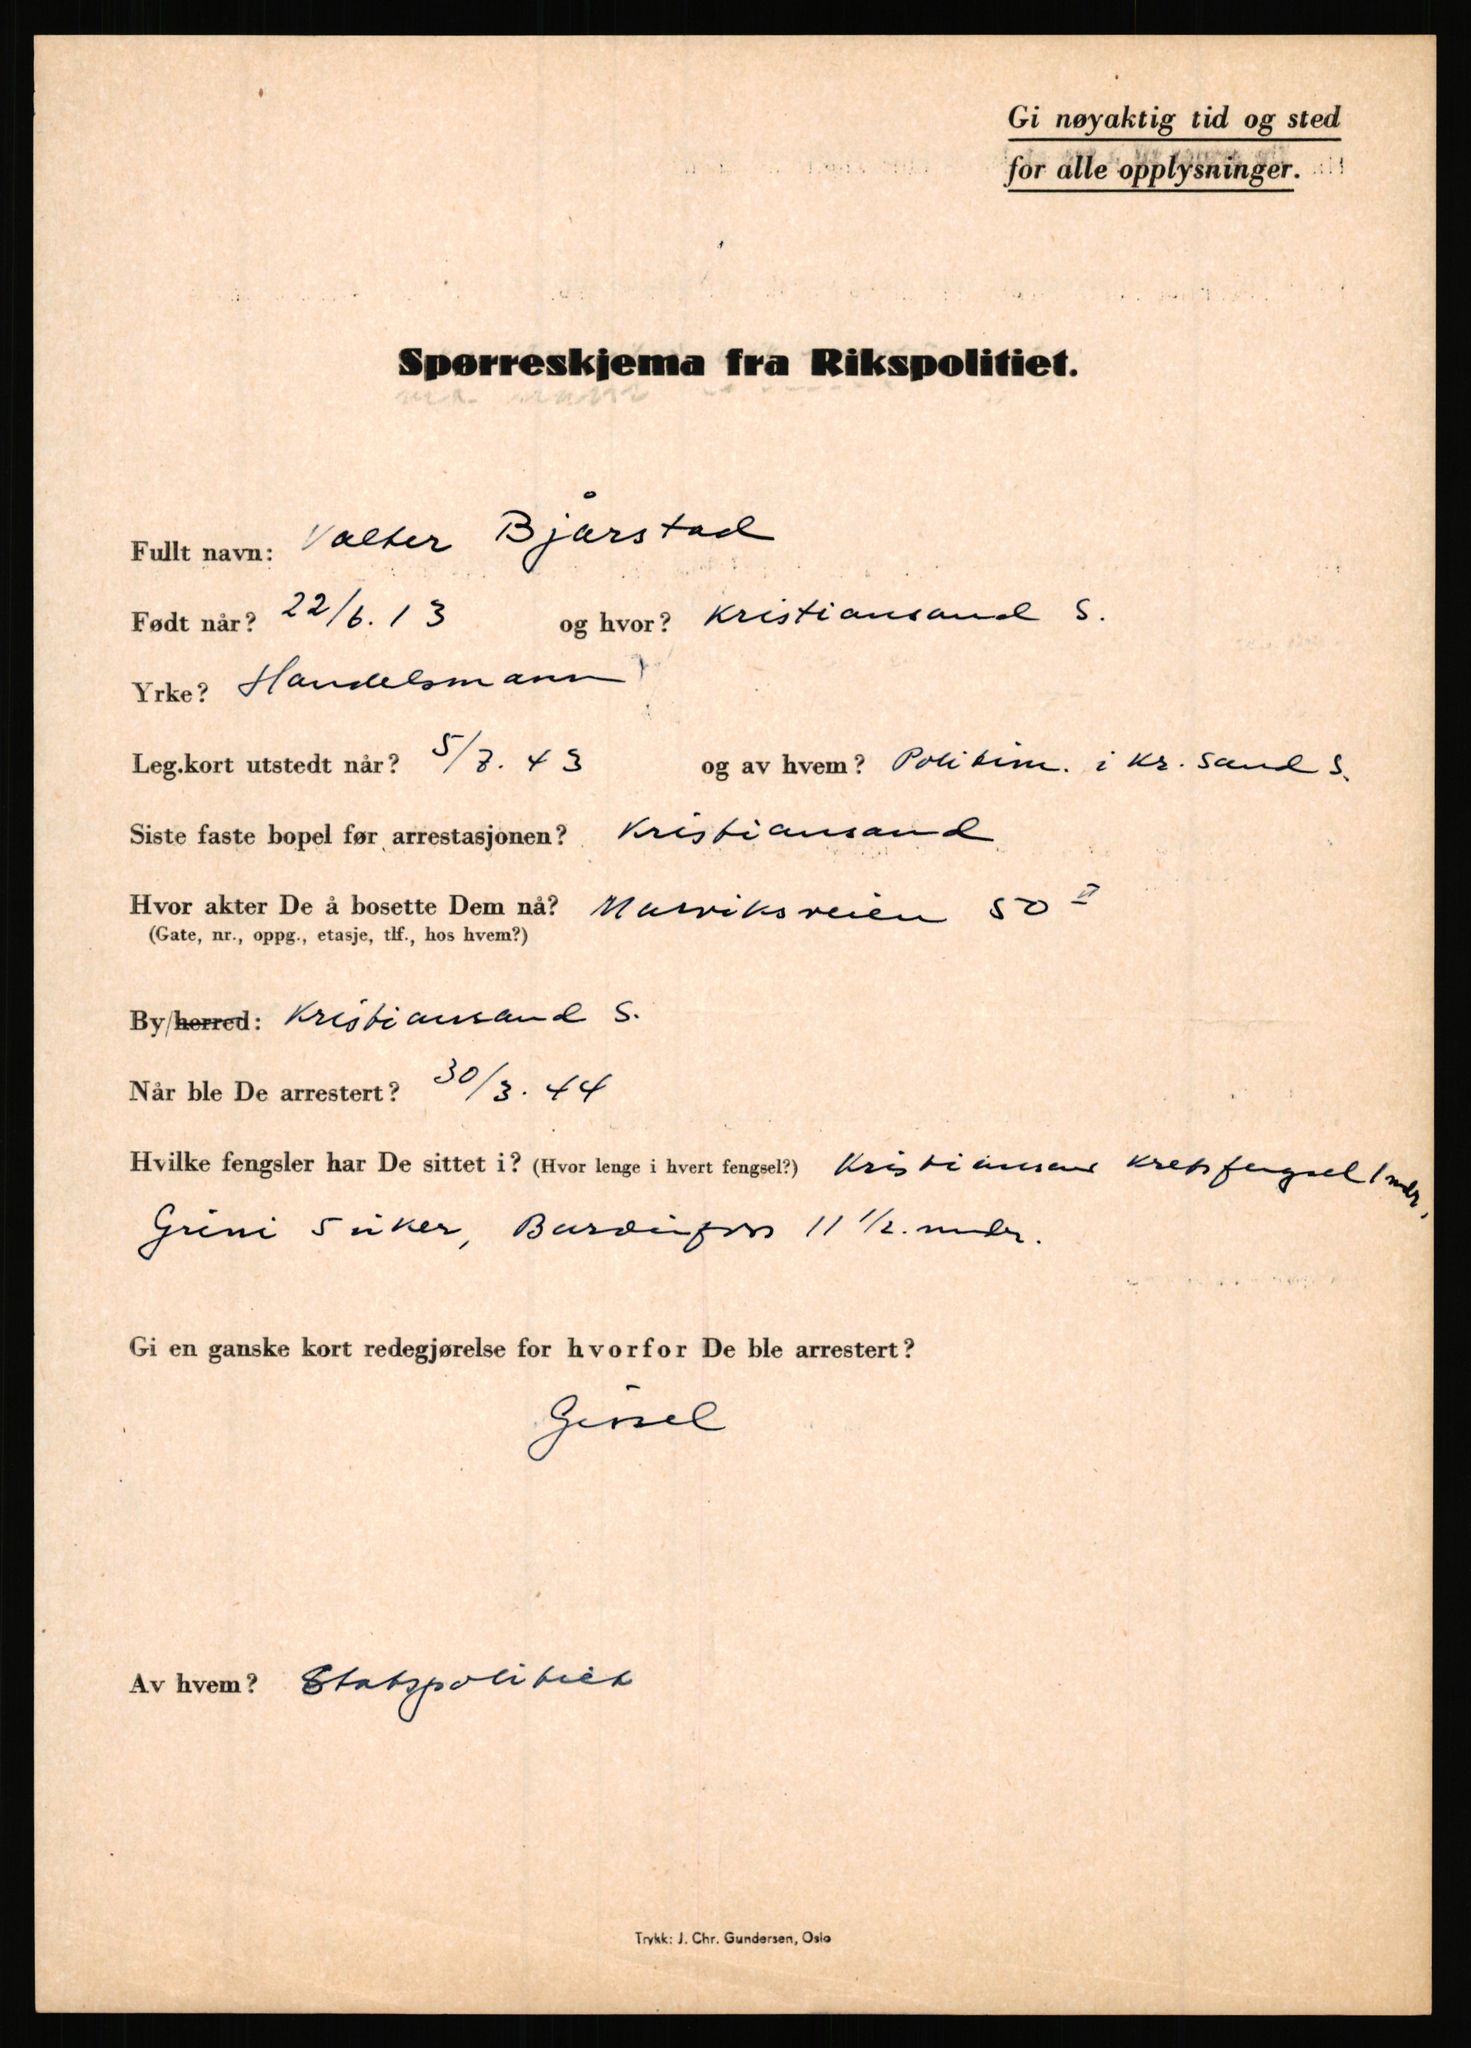 Gi nøyaktig tid og sted
for alle opplysninger.
Spørreskjema fra Rikspolitiet.
Fullt navn: Valter Bjårstad
Født når? 22/6.13 og hvor? Kristiansand S.
Yrke? Handelsmann
Leg.kort utstedt når? 5/7.43 og av hvem? Politim. i Kr.sand S.
Siste faste bopel før arrestasjonen? Kristiansand
Hvor akter De å bosette Dem nå? Marviksveien 50 II
(Gate, nr., oppg., etasje, tlf., hos hvem?)
By/herred: Kristiansand S.
Når ble De arrestert? 30/3.44
Hvilke fengsler har De sittet i? (Hvor lenge i hvert fengsel?) Kristiansand Kretsfengsel 1 mdr,
Grini 5 uker, Bardufoss 11 1/2. mndr.
Gi en ganske kort redegjørelse for hvorfor De ble arrestert?
Gissel
Av hvem? Statspolitiet
Trykk: J. Chr. Gundersen, Oslo